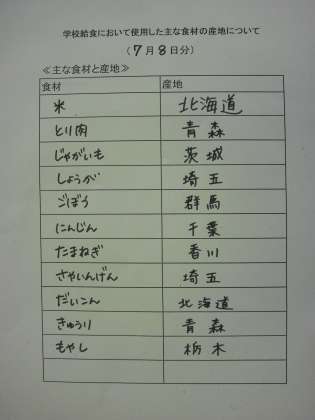 学校給食において使用した主な食材の産地について
（7月8日分）
≪主な食材と産地≫
食材 産地
米 北海道
とり肉 青森
じゃがいも 茨城
しょうが 埼玉
ごぼう 群馬
にんじん 千葉
たまねぎ 香川
さやいんげん 埼玉
だいこん 北海道
きゅうり 青森
もやし 栃木